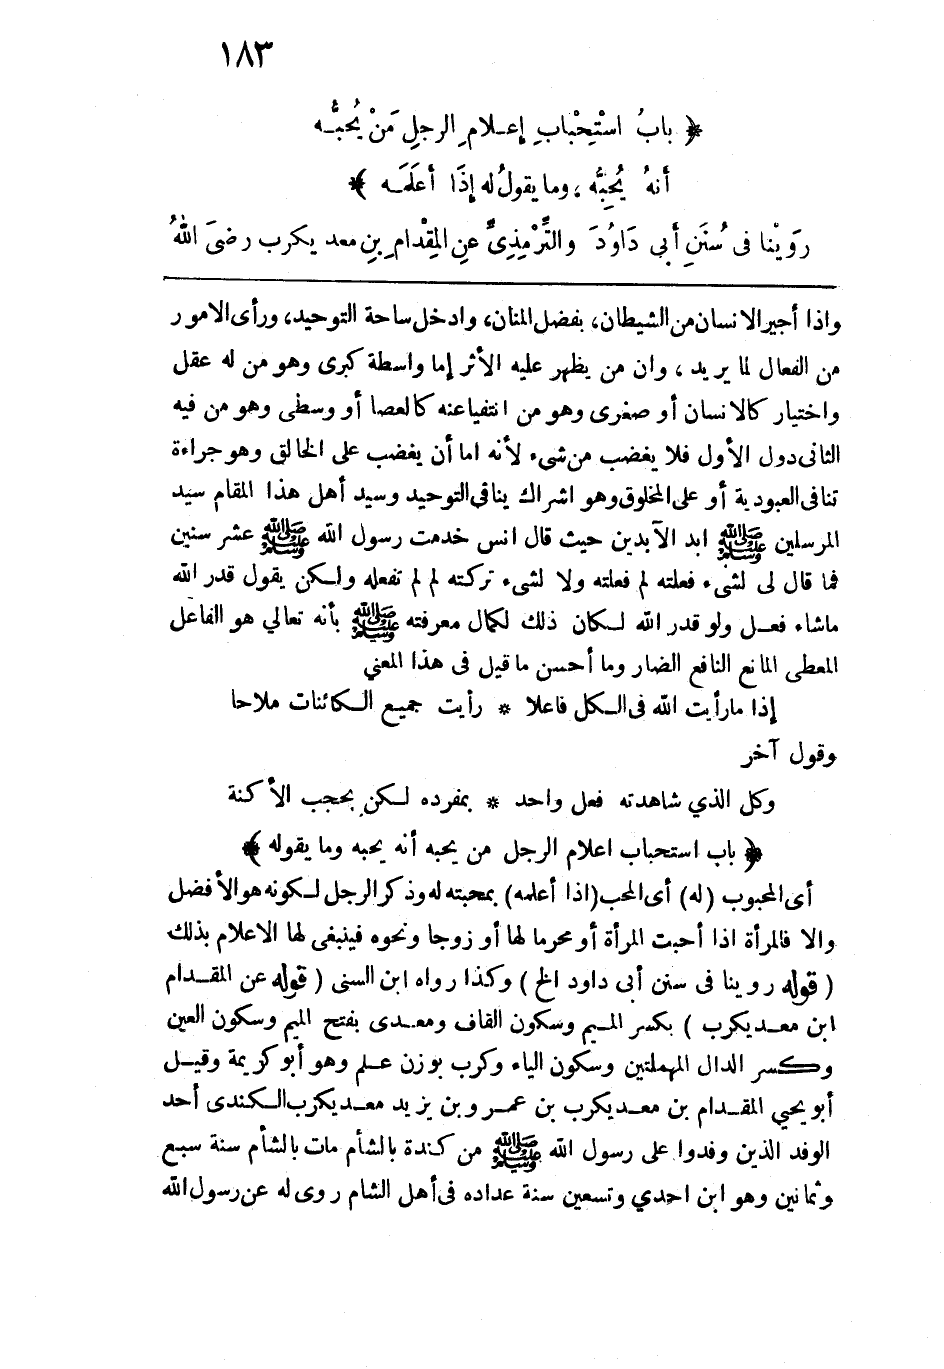 ١٨٣
﴿ بابُ اسْتِحْبابِ إعـلامِ الرجلِ مَنْ يُحبُّـه
أنهُ يُحِبُّه ، وما يقولُ له إذَا أعلَمَـه ﴾
رَوَيْنا فى سُنَنِ أبى دَاوُدَ والتِّرْمِذِىِّ عنِ المِقْدامِ بنِ معد يكرب رضىَ اللهُ
واذا أجير الانسان من الشيطان، بفضل المنان، وادخل ساحة التوحيد، ورأى الامور
من الفعال لما يريد ، وان من يظهر عليه الأثر إما واسطة كبرى وهو من له عقل
واختيار كالانسان أو صغرى وهو من انتفيا عنه كالعصا أو وسطى وهو من فيه
الثانى دول الأول فلا يغضب من شىء لأنه اما أن يغضب على الخالق وهو جراءة
تنافى العبودية أو على المخلوق وهو اشراك ينافى التوحيد وسيد أهل هذا المقام سيد
المرسلين ﷺ ابد الآبدين حيث قال انس خدمت رسول الله ﷺ عشر سنين
فما قال لى لشىء فعلته لم فعلته ولا لشىء تركته لم لم تفعله ولـكن يقول قدر الله
ماشاء فعـل ولو قدر الله لـكان ذلك لكمال معرفته ﷺ بأنه تعالي هو الفاعل
المعطى المانع النافع الضار وما أحسن ما قيل فى هذا المعني
إذا مارأيت الله فى الـكل فاعلا * رأيت جميع الـكائنات ملاحا
وقول آخر
وكل الذي شاهدته فعل واحد * بمفرده لـكن بحجب الأكنة
﴿ باب استحباب اعلام الرجل من يحبه أنه يحبه وما يقوله ﴾
أى المحبوب (له) أى المحب (اذا أعلمه) بمحبته له وذكر الرجل لـكونه هو الأفضل
والا فالمرأة اذا أحبت المرأة أو محرما لها أو زوجا ونحوه فينبغى لها الاعلام بذلك
( قوله روينا فى سنن أبى داود الخ ) وكذا رواه ابن السنى ( قوله عن المقـدام
ابن معـد يكرب ) بكسر المـيم وسكون القاف ومعـدى بفتح الميم وسكون العين
وكسر الدال المهملتين وسكون الياء وكرب بوزن عـلم وهو أبو كريمة وقيـل
أبو يحيي المقـدام بن معـد يكرب بن عمـر و بن يزيد معـد يكرب الـكندى أحد
الوفد الذين وفدوا على رسول الله ﷺ من كندة بالشأم مات بالشأم سنة سبع
وثمانين وهو ابن احدي وتسعين سنة عداده فى أهل الشام روى له عن رسول الله